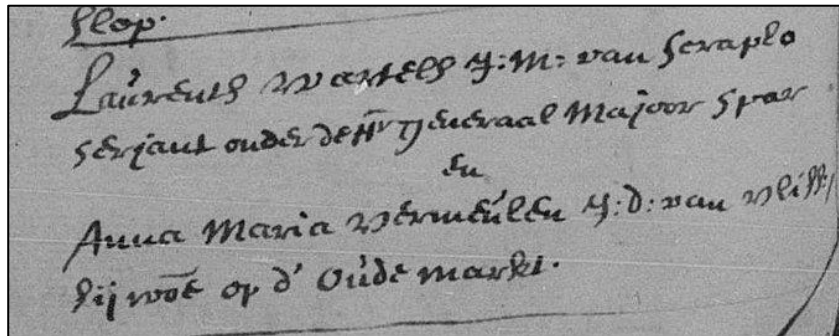 Slop.
Laurents Wartels J: M: van Seraplo
serjant onder de Hr Generaal Majoor Spar
en
Anna Maria Vermeulen J: d: van Vliss:
sij woē op d' Oude markt.